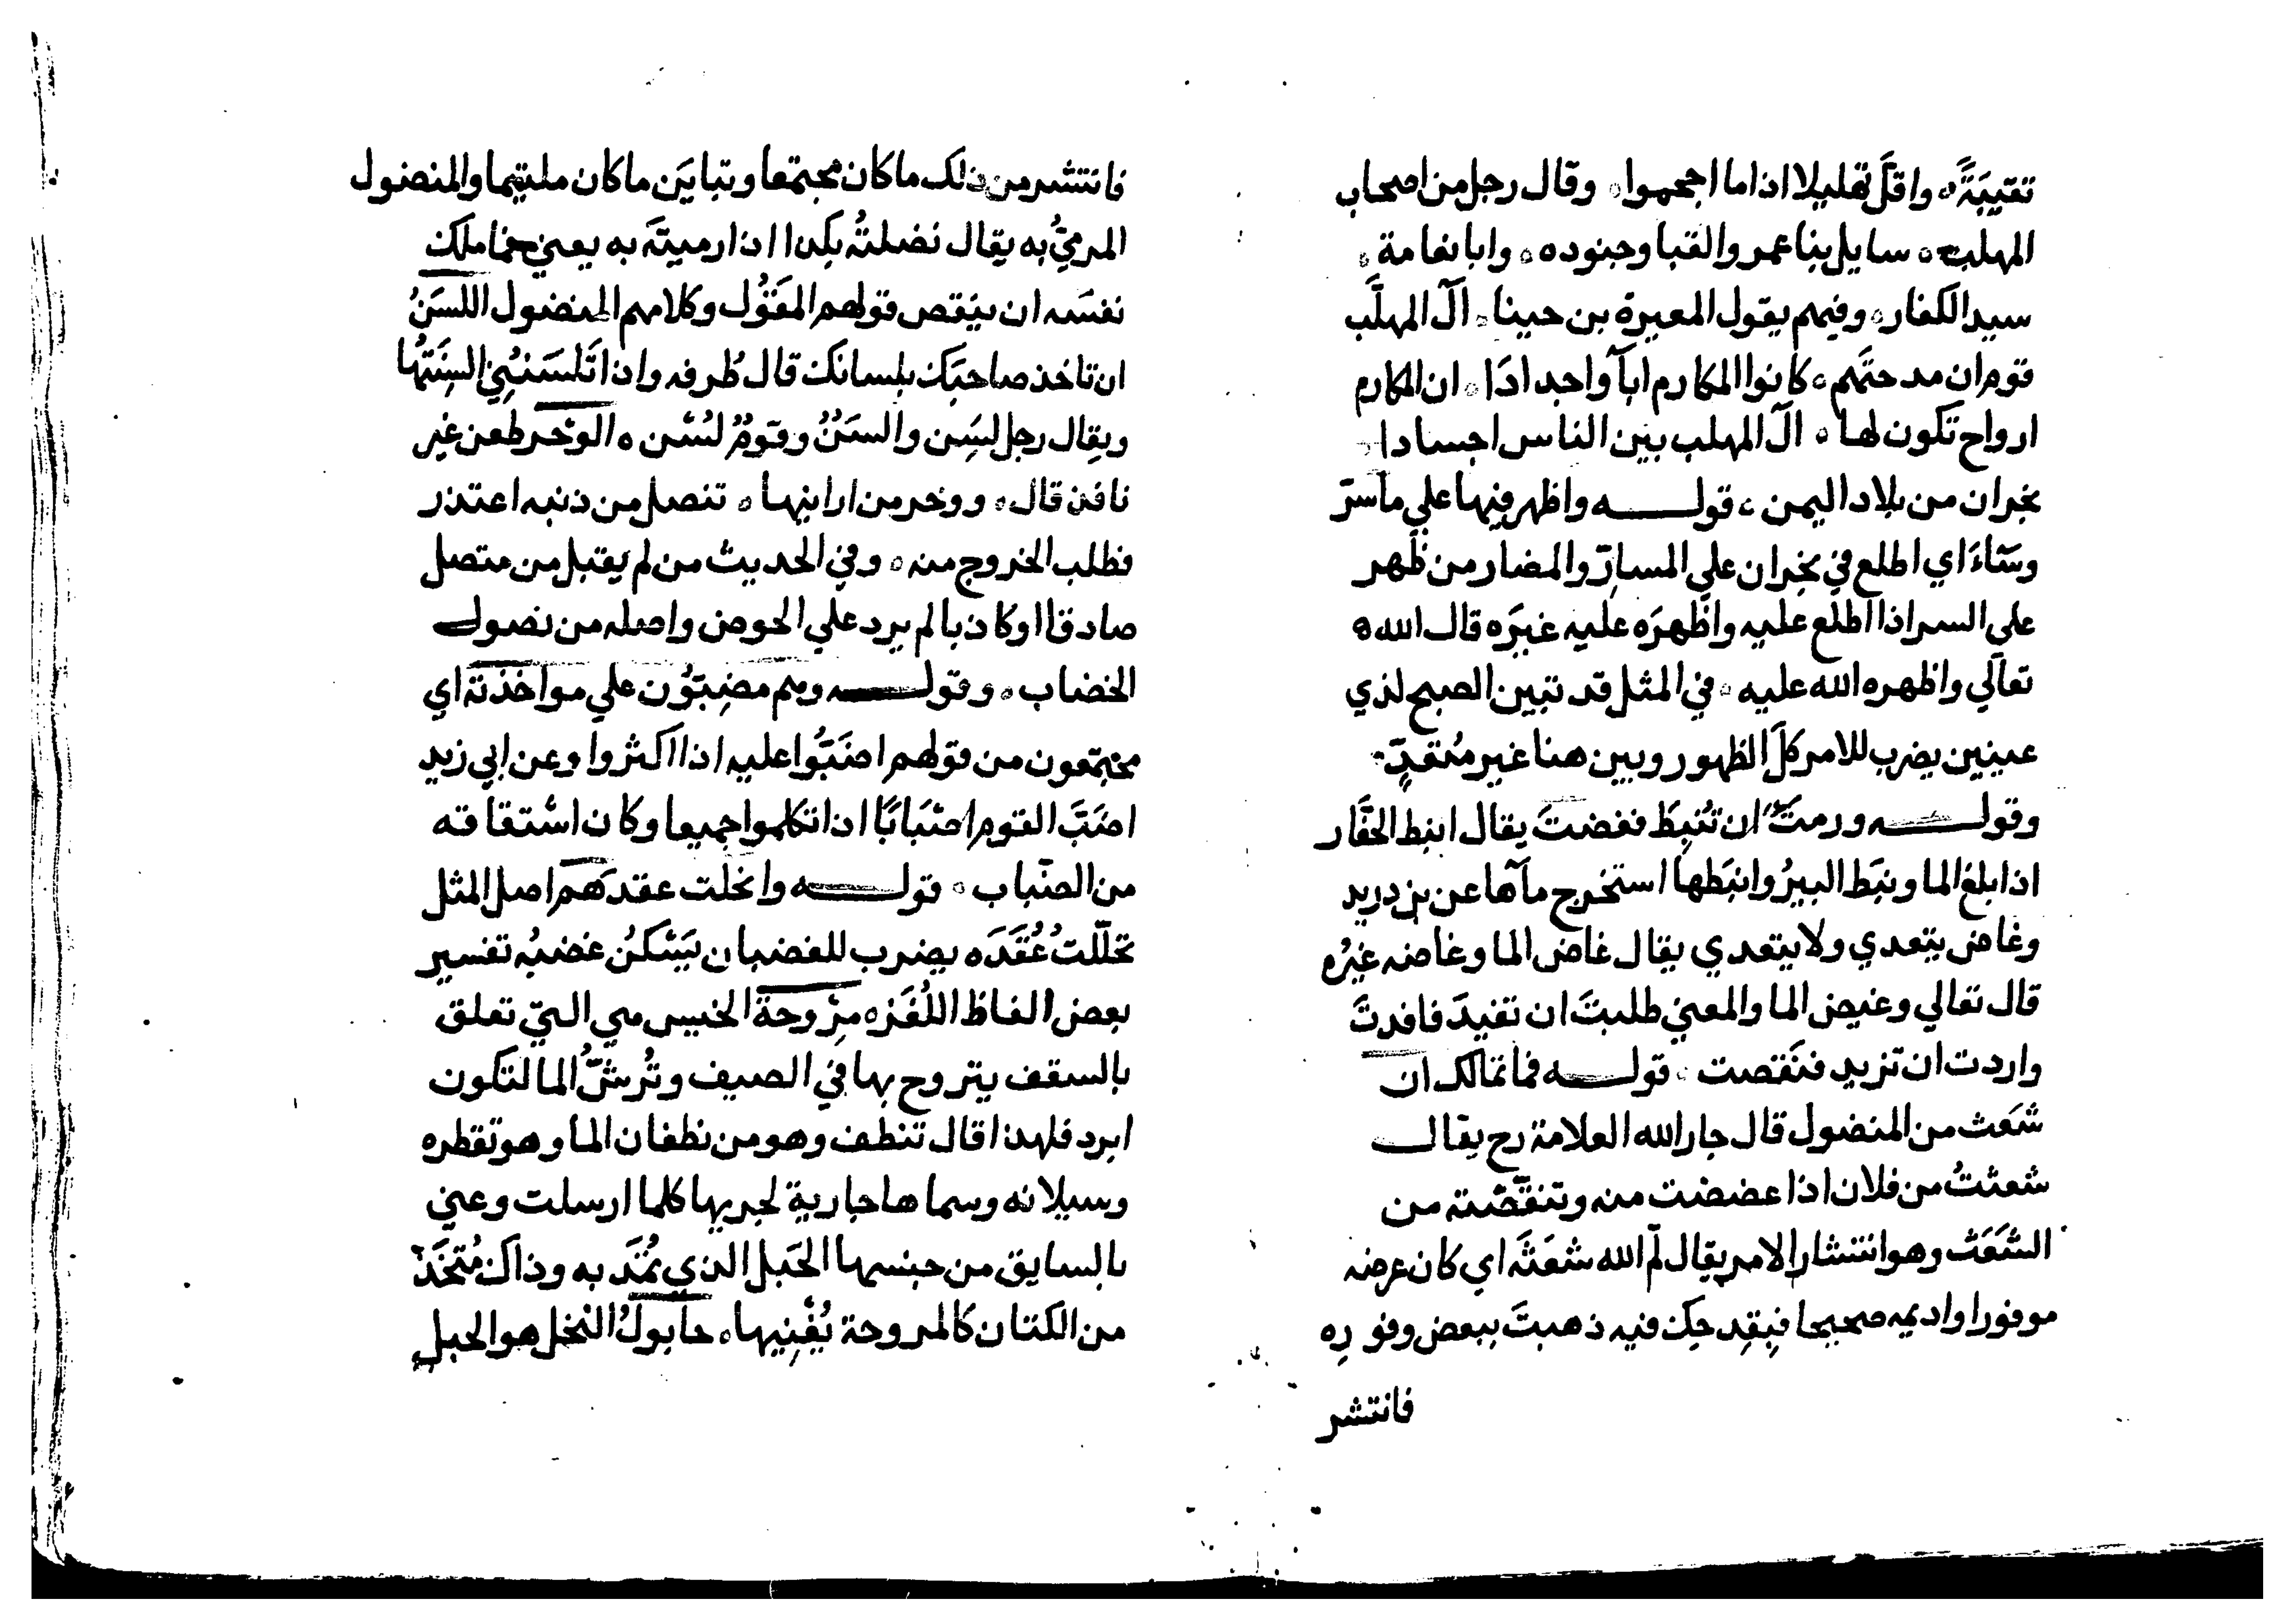 تقيبَةً ٥ واقلَّ تهليلا اذا ما احجموا ٥ وقال رجل من اصحاب
المهلب ٥ سايل بنا عمرو القبا وجنوده ٥ وابا نعامة ٥
سيد الكفار ٥ وفيهم يقول المغيرة بن حبنا ٥ آل المهلَّب
قوم ان مدحتَهم ٥ كانوا المكارم اباً واجدادَا ٥ ان المكارم
ارواح تكون لها ٥ آل المهلب بين الناس اجسادا
نجران من بلاد اليمن ٥ قولــــه واظهر فيها علي ما سرّ
وسَّاءَ اي اطلع في نجران علي المسارّ والمضار من ظهر
علي السر اذا اطلع عليه واظهرَه عليه غيرَه قال الله ٥
تعالي واظهره الله عليه ٥ في المثل قد تبين الصبح لذي
عينين يضرب للامر كلَ الظهور وبين هنا غير متعدٍّ
وقولــــه ورمتَ ان تُنبِطَ فغضتَ يقال انبط الحفَّار
اذا بلغ الما ونبَط البيرُ وانبَطها استخرج مآها عن بن دريد
وغاض يتعدي ولا يتعدي يقال غاض الما وغاضه غيرُه
قال تعالي وغيض الما والمعني طلبتَ ان تفيدَ فافدتَ
واردت ان تزيد فنَقصت ٥ قولــــه فما تمالك ان
شعَث من المنضول قال جار الله العلامة رح يقالــ
شعثتُ من فلان اذا عضضت منه وتنقَّصْته من
الشَعَث وهو انتشار الامر يقال لَم الله شعَثَه اي كان عرضه
موفورا واديمه صحيحا فبِقدحِك فيه ذهبتَ ببعض وفورِه
فانتشر
فانتشر من ذلك ما كان مجتمعا وتباين ما كان ملتيما والمنضول
المرميُّ به يقال نضلتُه بكذا اذا رميتَه به يعني فما ملك
نفسَه ان ينقص قولهم المقوُل وكلامهم المنضول اللسَنُ
ان تاخذ صاحبَك بلسانك قال طُرفه واذا تَلسَننُبِي السِنَتُها
ويقال رجل لسِن والسَنُ وقومٌ لسُن ٥ الوخر طعن غير
نافذ قال ٥ ووخر من ارانيها ٥ تنصل من ذنبه اعتذر
فطلب الخروج منه ٥ وفي الحديث من لم يقبل من متصل
صادقا او كاذبا لم يرد علي الحوض واصله من نصولــ
الخضاب ٥ وقولــــه وهم مضِبّوُن علي مواخذته اي
مجتمعون من قولهم اضَبُّوا عليه اذا اكثروا وعن ابي زيد
اضَبَّ القوم اضبَابًا اذا تكلموا جميعا وكان اشتقاقه
من الضّباب ٥ قولــــه وانحلت عقدهَم اصل المثل
تحلّلتْ عُقَدَه يضرب للغضبان يَسْكنُ غضبُه تفسير
بعض الفاظ اللُغَزه مِرْوحة الخيس هي التي تعلق
بالسقف يتروح بها في الصيف وتُرشُّ الما لتكون
ابرد فلهذا قال تنطف وهو من نطفان الما وهو تقطره
وسيلانه وسماها جارية لجريها كلما ارسلت وعني
بالسايق من جنسها الحَبل الذي تُمَدّ به وذاك مُتخَّذ
من الكتان كالمروحة يُفْنِيها ٥ حابولُ النخل هو الحبل